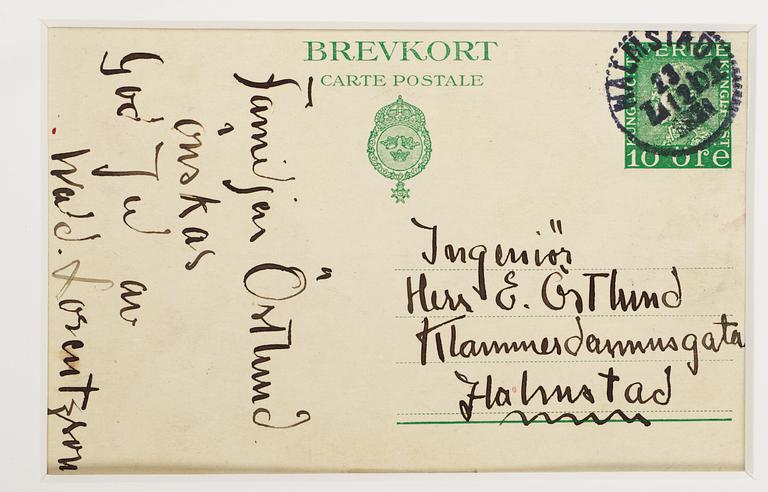 BREVKORT
CARTE POSTALE
HALMSTAD
23
SVERIGE
10 ÖRE
Familjen Östlund
önskas
God Jul av
Wald. Lorentzson
Ingeniör
Herr E. Östlund
Klammerdammsgata
Halmstad